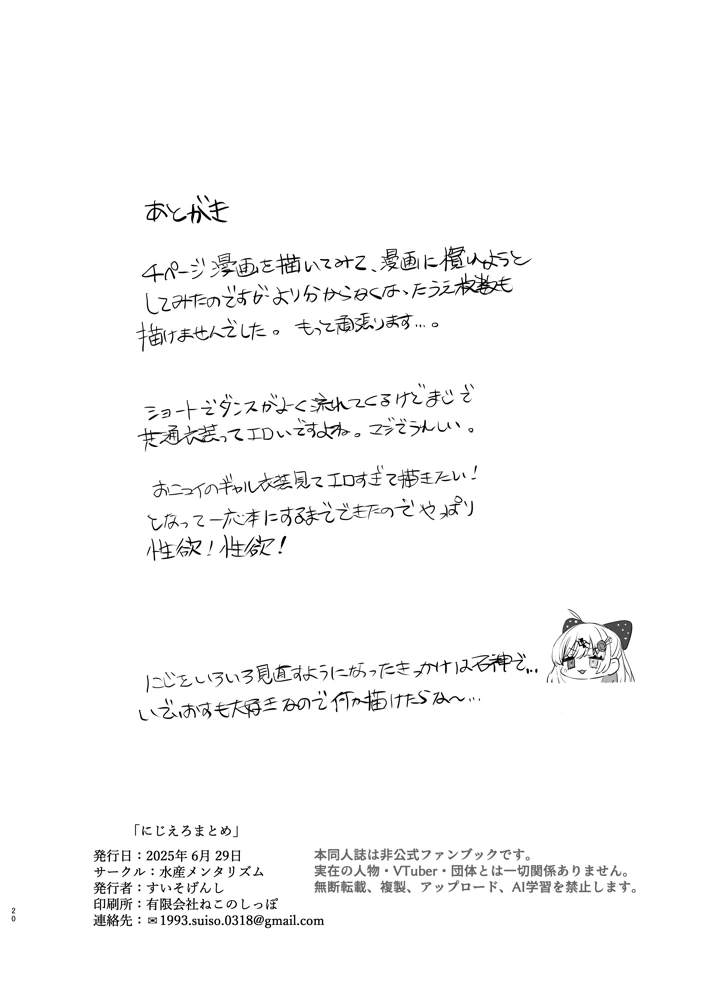 あとがき
4ページ漫画を描いてみて、漫画に慣れようと
してみたのですがより分からなくなったうえ枚数も
描けませんでした。もっと頑張ります…。
ショートでダンスがよく流れてくるけどまじで
共通衣装ってエロいですよね。マジでうれしい。
おニュイのギャル衣装見てエロすぎて描きたい!
となって一応本にするまでできたのでやっぱり
性欲!性欲!
にじをいろいろ見直すようになったきっかけは石神で…
いでぃおすも大好きなので何か描けたらな〜…
「にじえろまとめ」
発行日:2025年6月29日
サークル:水産メンタリズム
発行者:すいそげんし
印刷所:有限会社ねこのしっぽ
連絡先:✉1993.suiso.0318@gmail.com
本同人誌は非公式ファンブックです。
実在の人物・VTuber・団体とは一切関係ありません。
無断転載、複製、アップロード、AI学習を禁止します。
20